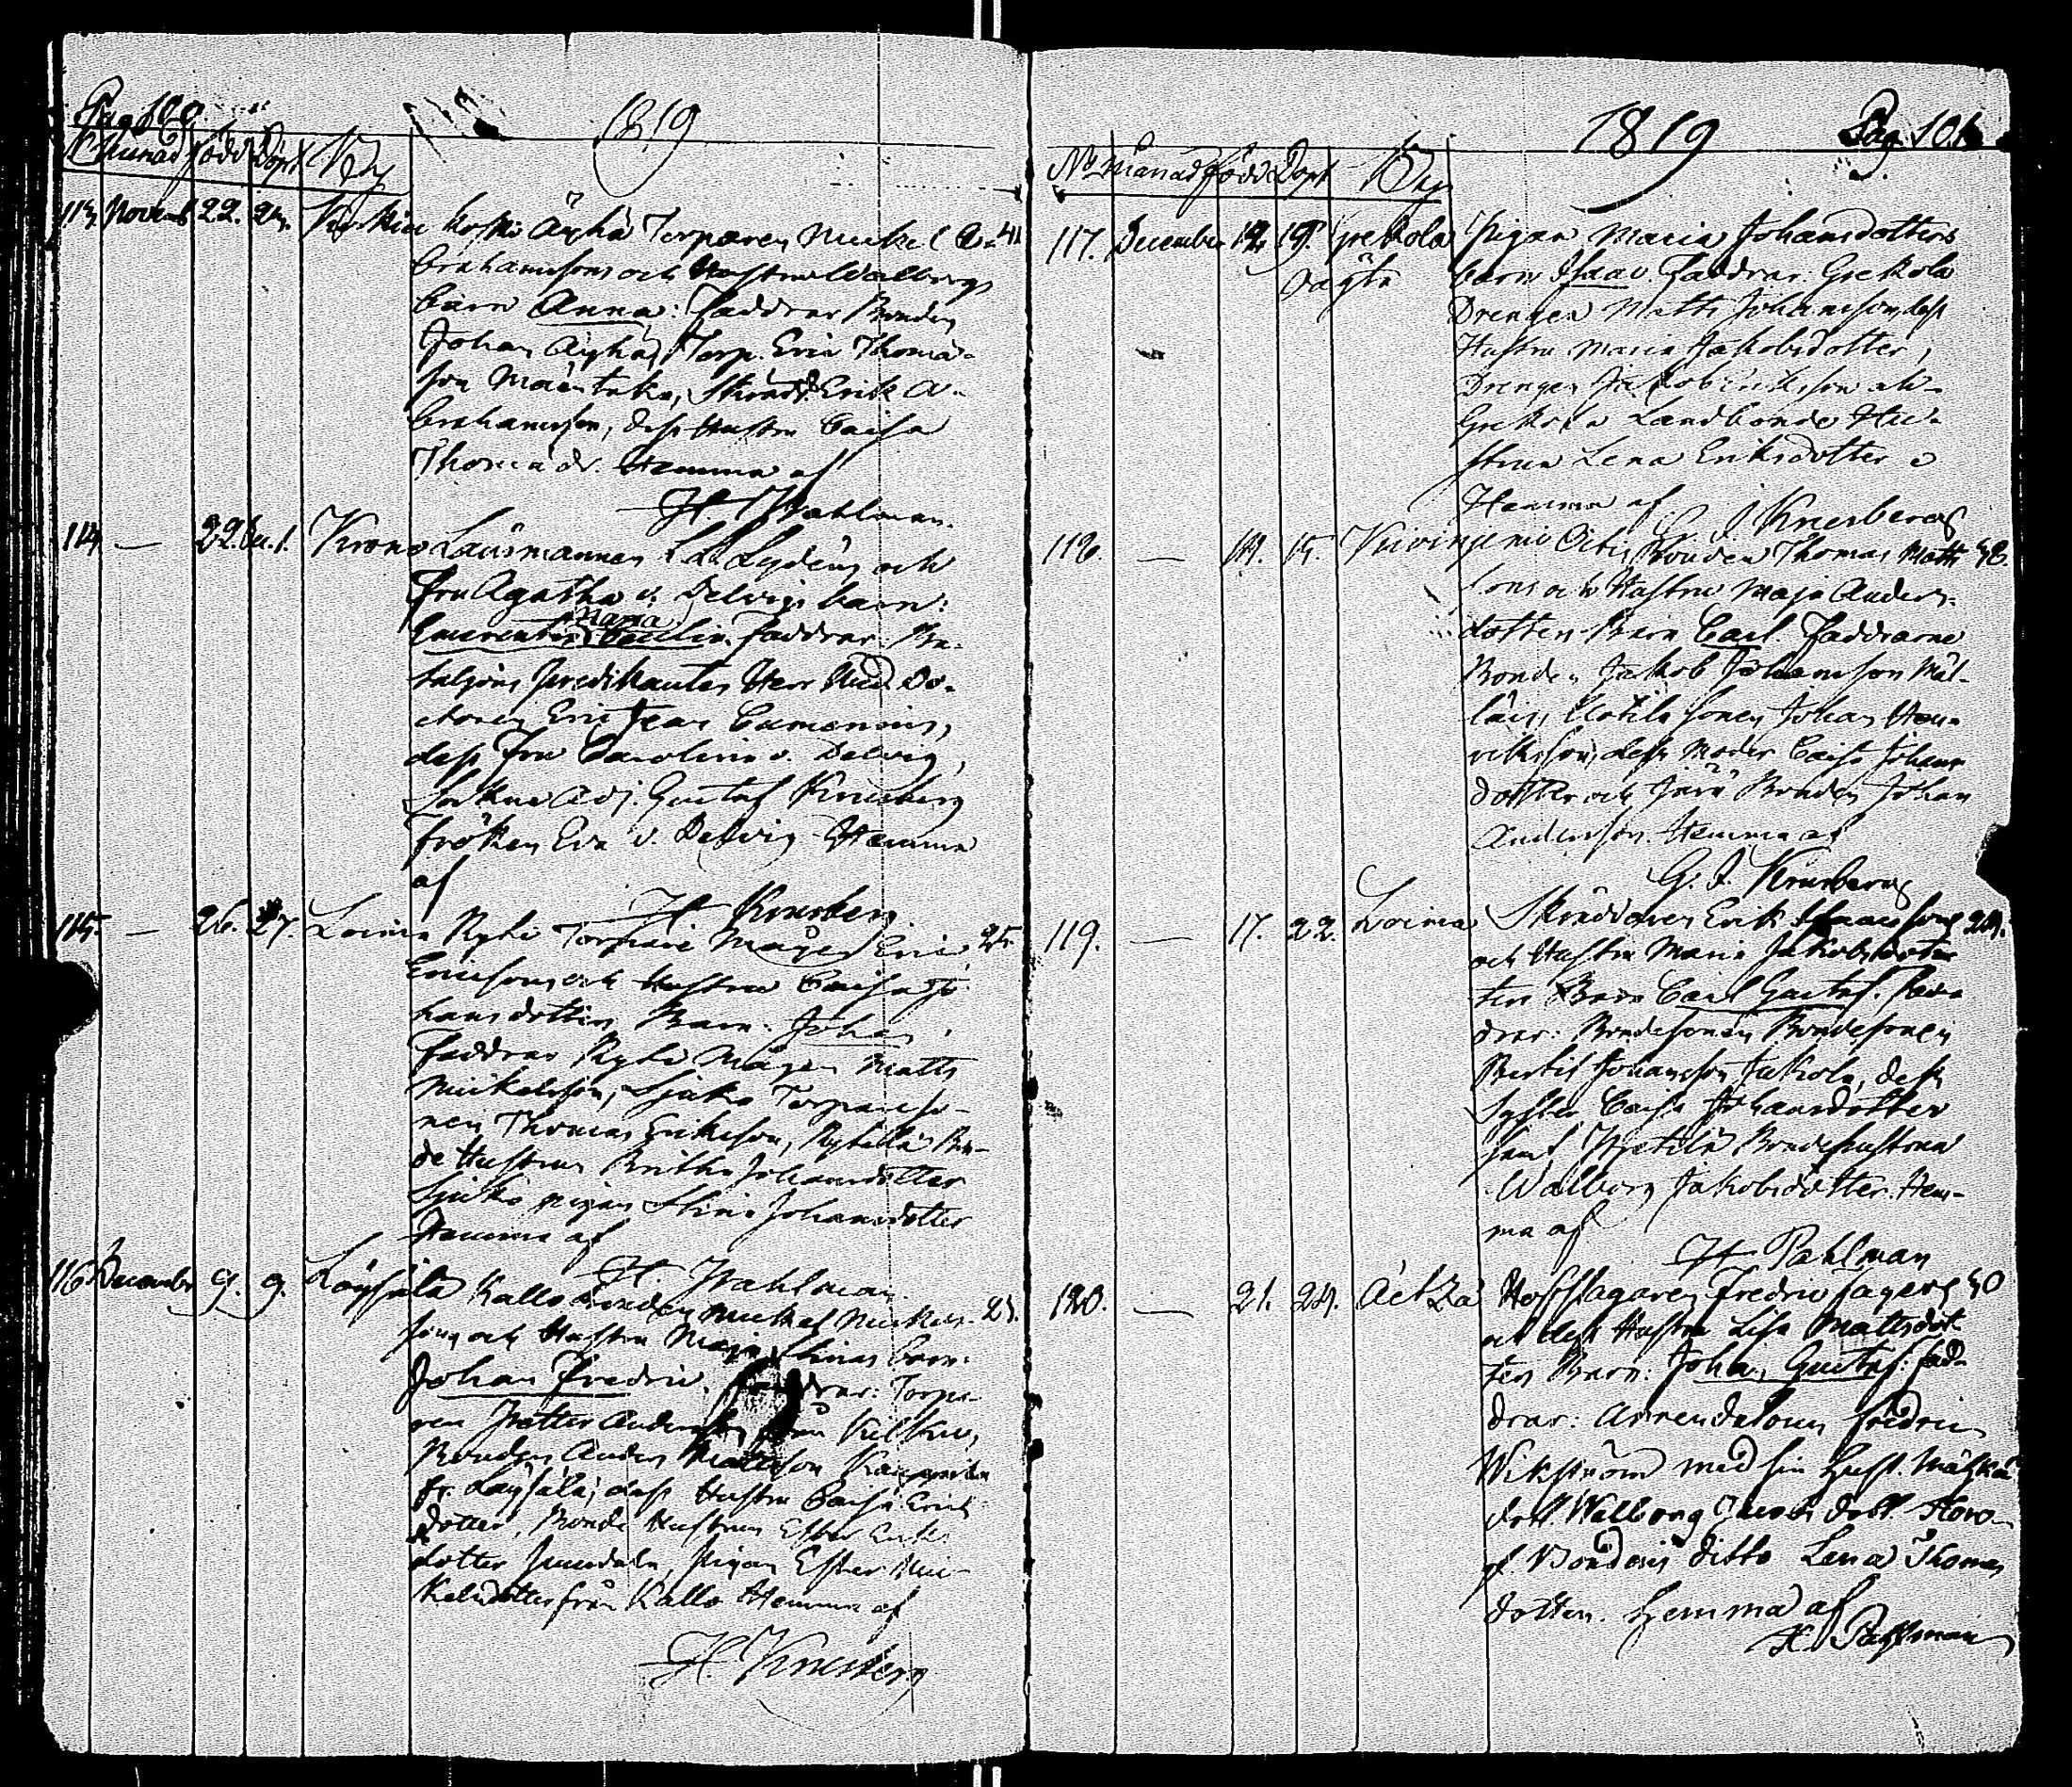 Pag. 100.
1819
N Månad Född Döpt By
113. Novemb 22. 24. Koskis Äyhö Torparen Mickel A- 41
brahamsons och Hustru Walborgs
barn Anna: Faddrar Bonden
Johan Äyhö, Torp. Eric Thoma-
son Mäentaka, Skrädd. Erik A-
brahamsson, dess Hustru Caisa
Thomadr. Hemma af
H. Pahlman.
114. — 22. Dec. 1. Krono Länsmannen Lydéns och
Fru Agatha v. Delwigs barn:
Maria
Emerentia Cecilia. Faddrar: Ba-
taljons Predikanten Herr
Eric Jean
dess Fru Carolina v. Delwig,
Sockne Adj. Gustaf Krusberg
Fröken Eva v. Delwig. Hemma
af
H Krusberg
115. — 26. 27. Loima Kyla Torpare Mågen Eric 25.
Ericsons och Hustru Caisa Jo-
hansdotters Barn: Johan,
Faddrar Kyla Mågen Matts
Mickelsson, Sjuko Torpareso-
nen Thomas Eriksson, Bon-
de Hustrun Britha Johansdotter
Sjuko pigan Stina Johansdotter
Hemma af
H. Pahlman.
116. December 9. 9. Löysälä Kallo Bonden Mickel Mickels- 23.
sons och Hustru Maja Stinas barn:
Johan Fredric. Faddrar: Torpa-
ren Petter Andersson från
Bonden Anders Mattsson
fr. Löysälä, dess Hustru Caisa Erics
dotter, Bonde Hustrun Ester Eriks
dotter, pigan Ester Mic-
kelsdotter från Kallo Hemma af
H. Krusberg
1819
Pag. 101.
No Månad Född Döpt By
117. December 12. 19. Grekola Pigan Maria Johansdotters
oägta barn Isaac. Faddrar: Grekola
Drengen Matts Johansson, dess
Hustru Maria Jakobsdotter,
Drengen Jakob Eriksson och
Grekola Landbonde Hu-
strun Lena Eriksdotter
Hemma af
G. J. Krusberg
118. — 14. 15. Bonden Thomas Matts 42.
sons och Hustru Maja Anders-
dotters Barn Carl. Faddrarne
Bonden Jakob Johansson Mäl-
läis, sonen Johan Hen-
riksson, dess Moder Caisa Johans
dotter och Järä Bonden Johan
Andersson. Hemma af
G. J. Krusberg
119. — 17. 22. Loima Skräddaren Erik Isaacsons 24.
och Hustru Maria Jakobsdot-
ters Barn Carl Gustaf. Fad-
drar: Bondesonen Bondesonen
Bertil Johansson Jukola, dess
Syster Caisa Johansdotter
samt Bondehustrun
Walborg Jakobsdotter. Hem-
ma af
H Pahlman
120. — 21. 24. Äetzä Hofslagaren Fredric Fagers 40
och dess Hustru Lisa Mattsdot-
ters Barn: Johan Gustaf. Fad-
drar: Arrendatorn Fredric
Wikström med sin Hust.
Walborg Jacobs dott.
Bondens ditto Lena Thomas
dotter. Hemma af
H. Pahlman